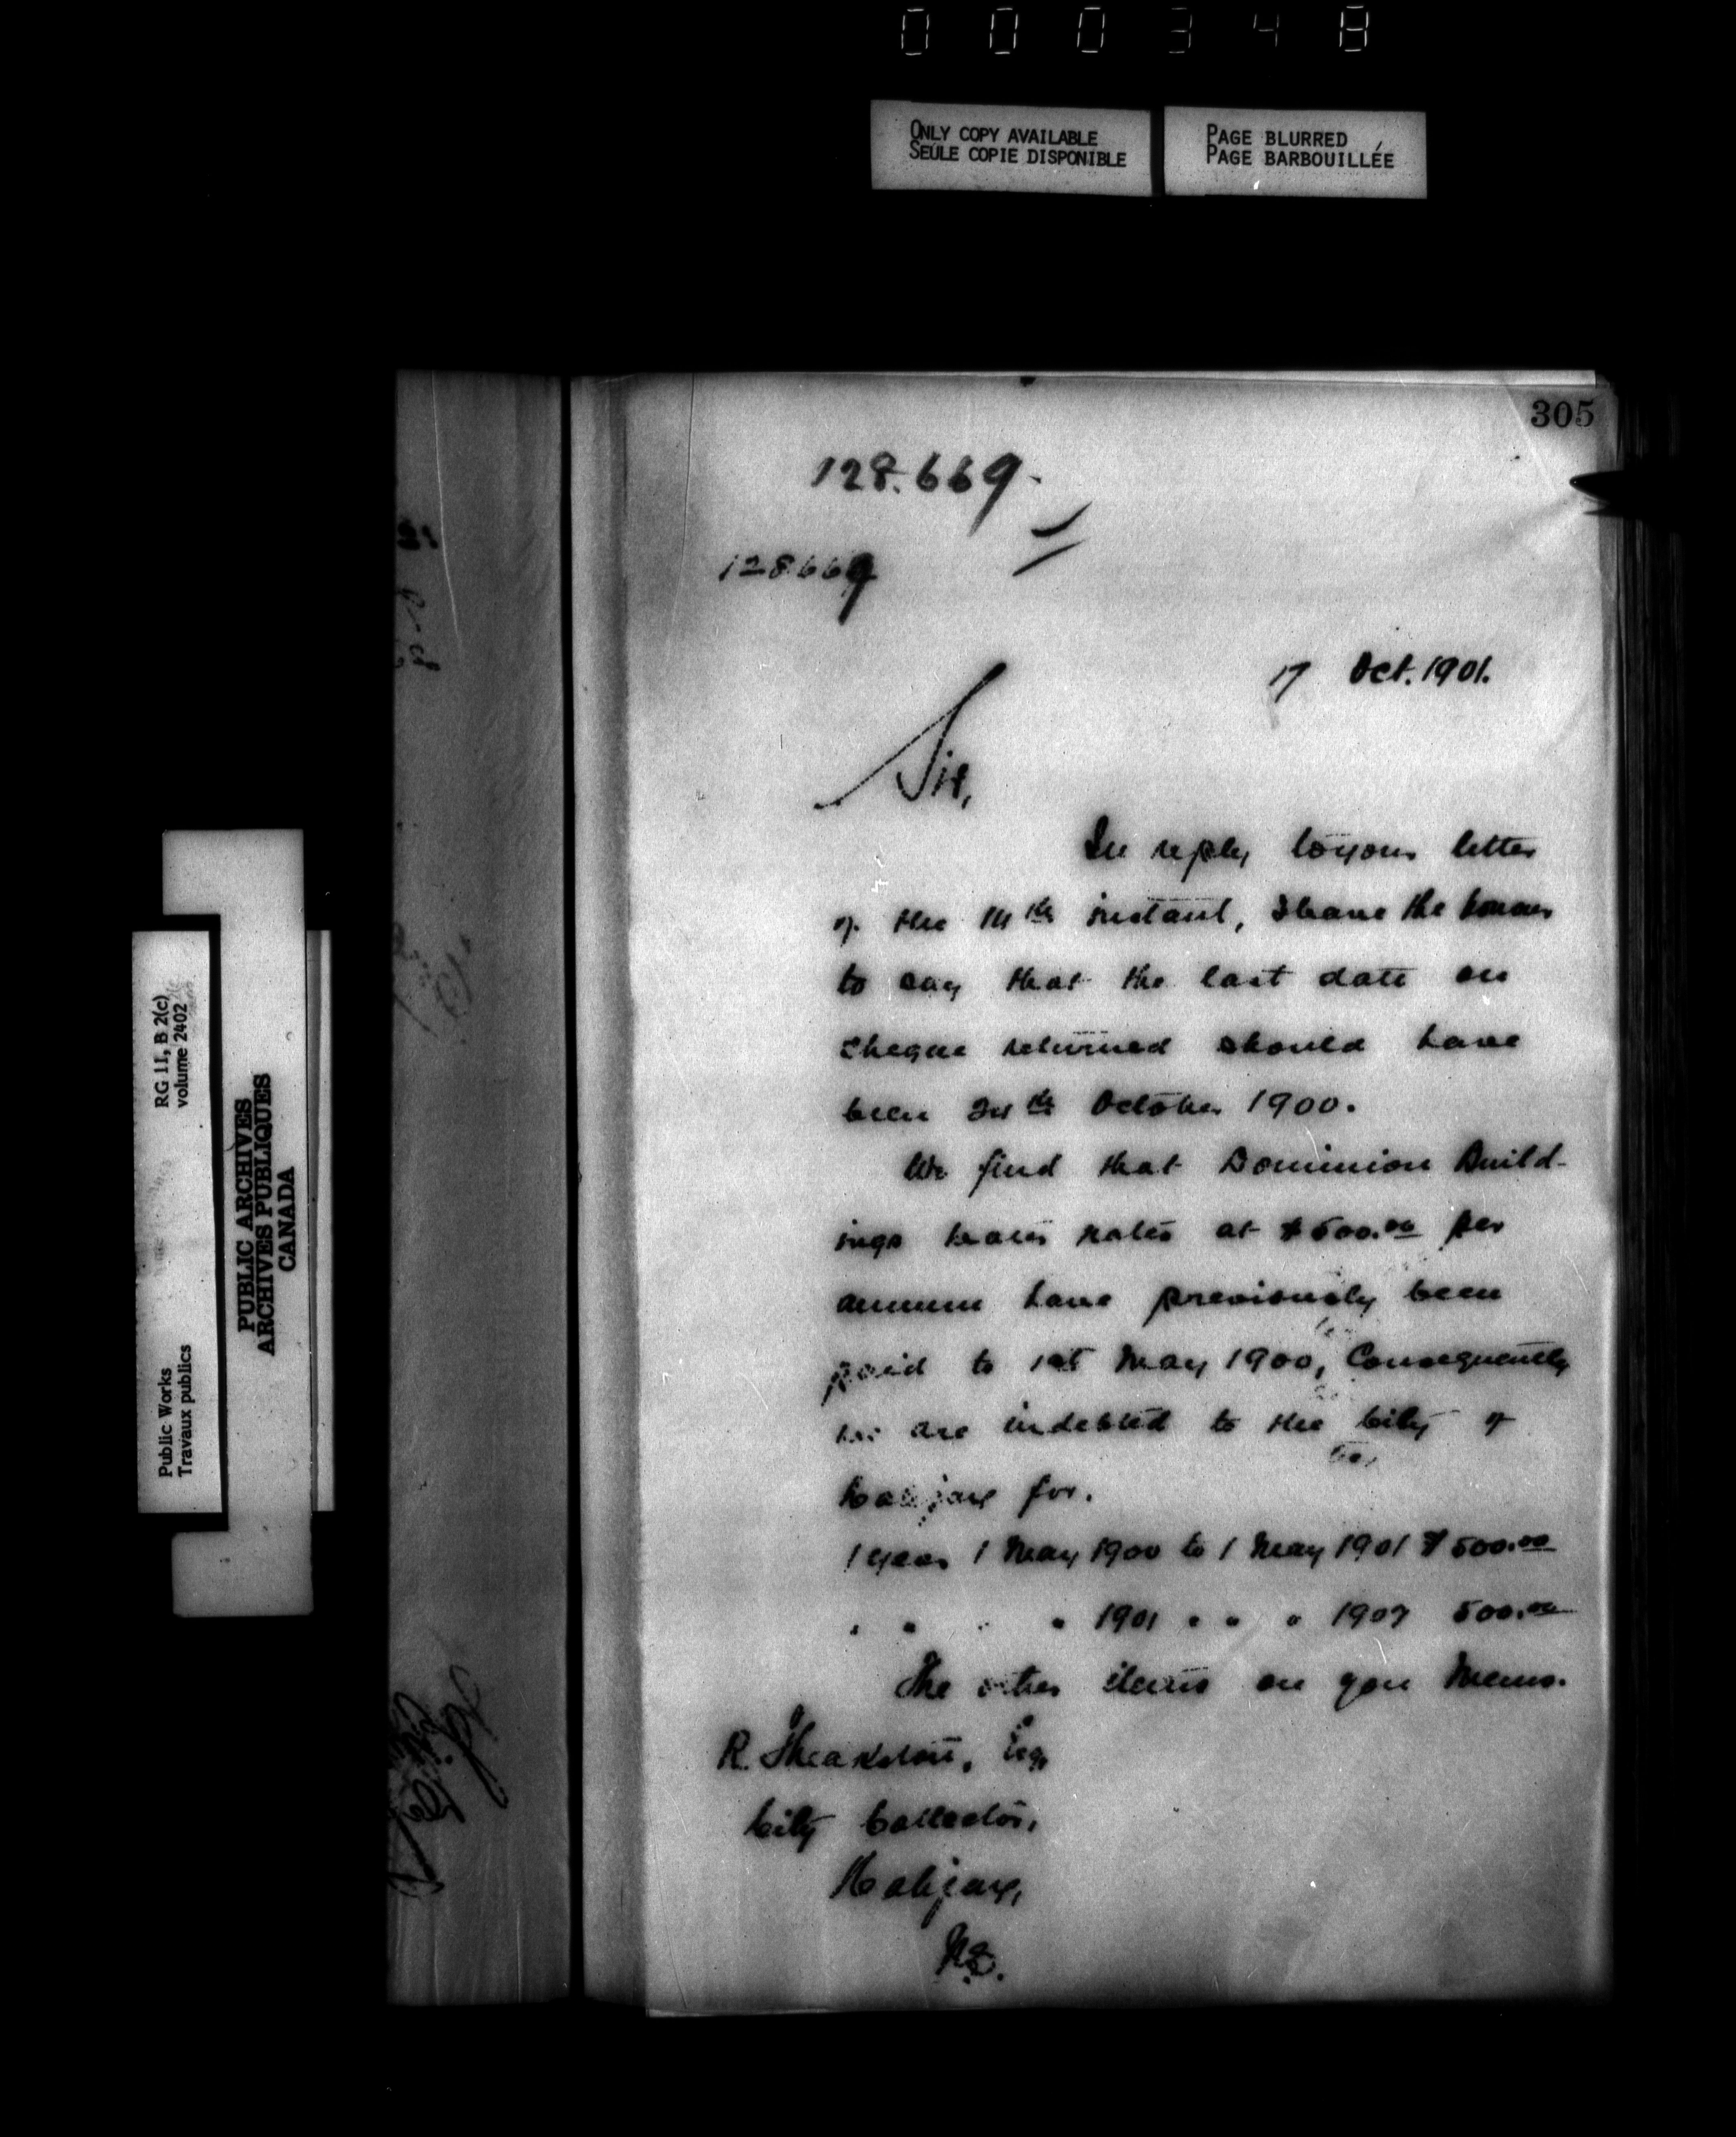 000348
ONLY COPY AVAILABLE
SEULE COPIE DISPONIBLE
PAGE BLURRED
PAGE BARBOUILLÉE
305
128.669.
128669
17 Oct. 1901.
Sir,
In reply to your letter
of the 14th instant, I have the honour
to say that the last date on
cheque returned should have
been October 1900.
We find that Dominion Build-
ings rates at $500.00 per
annum have previously been
paid to 1st May 1900, Consequently
we are indebted to the City of
Halifax for.
1 year 1 May 1900 to 1 May 1901 $500.00
" " " " 1901 " " " 1902 500.00
The other items on you memo.
R. Theakston, Esq,
City Collector,
Halifax,
N.S.
Public Works
Travaux publics
RG 11, B 2(c)
volume 2402
PUBLIC ARCHIVES
ARCHIVES PUBLIQUES
CANADA